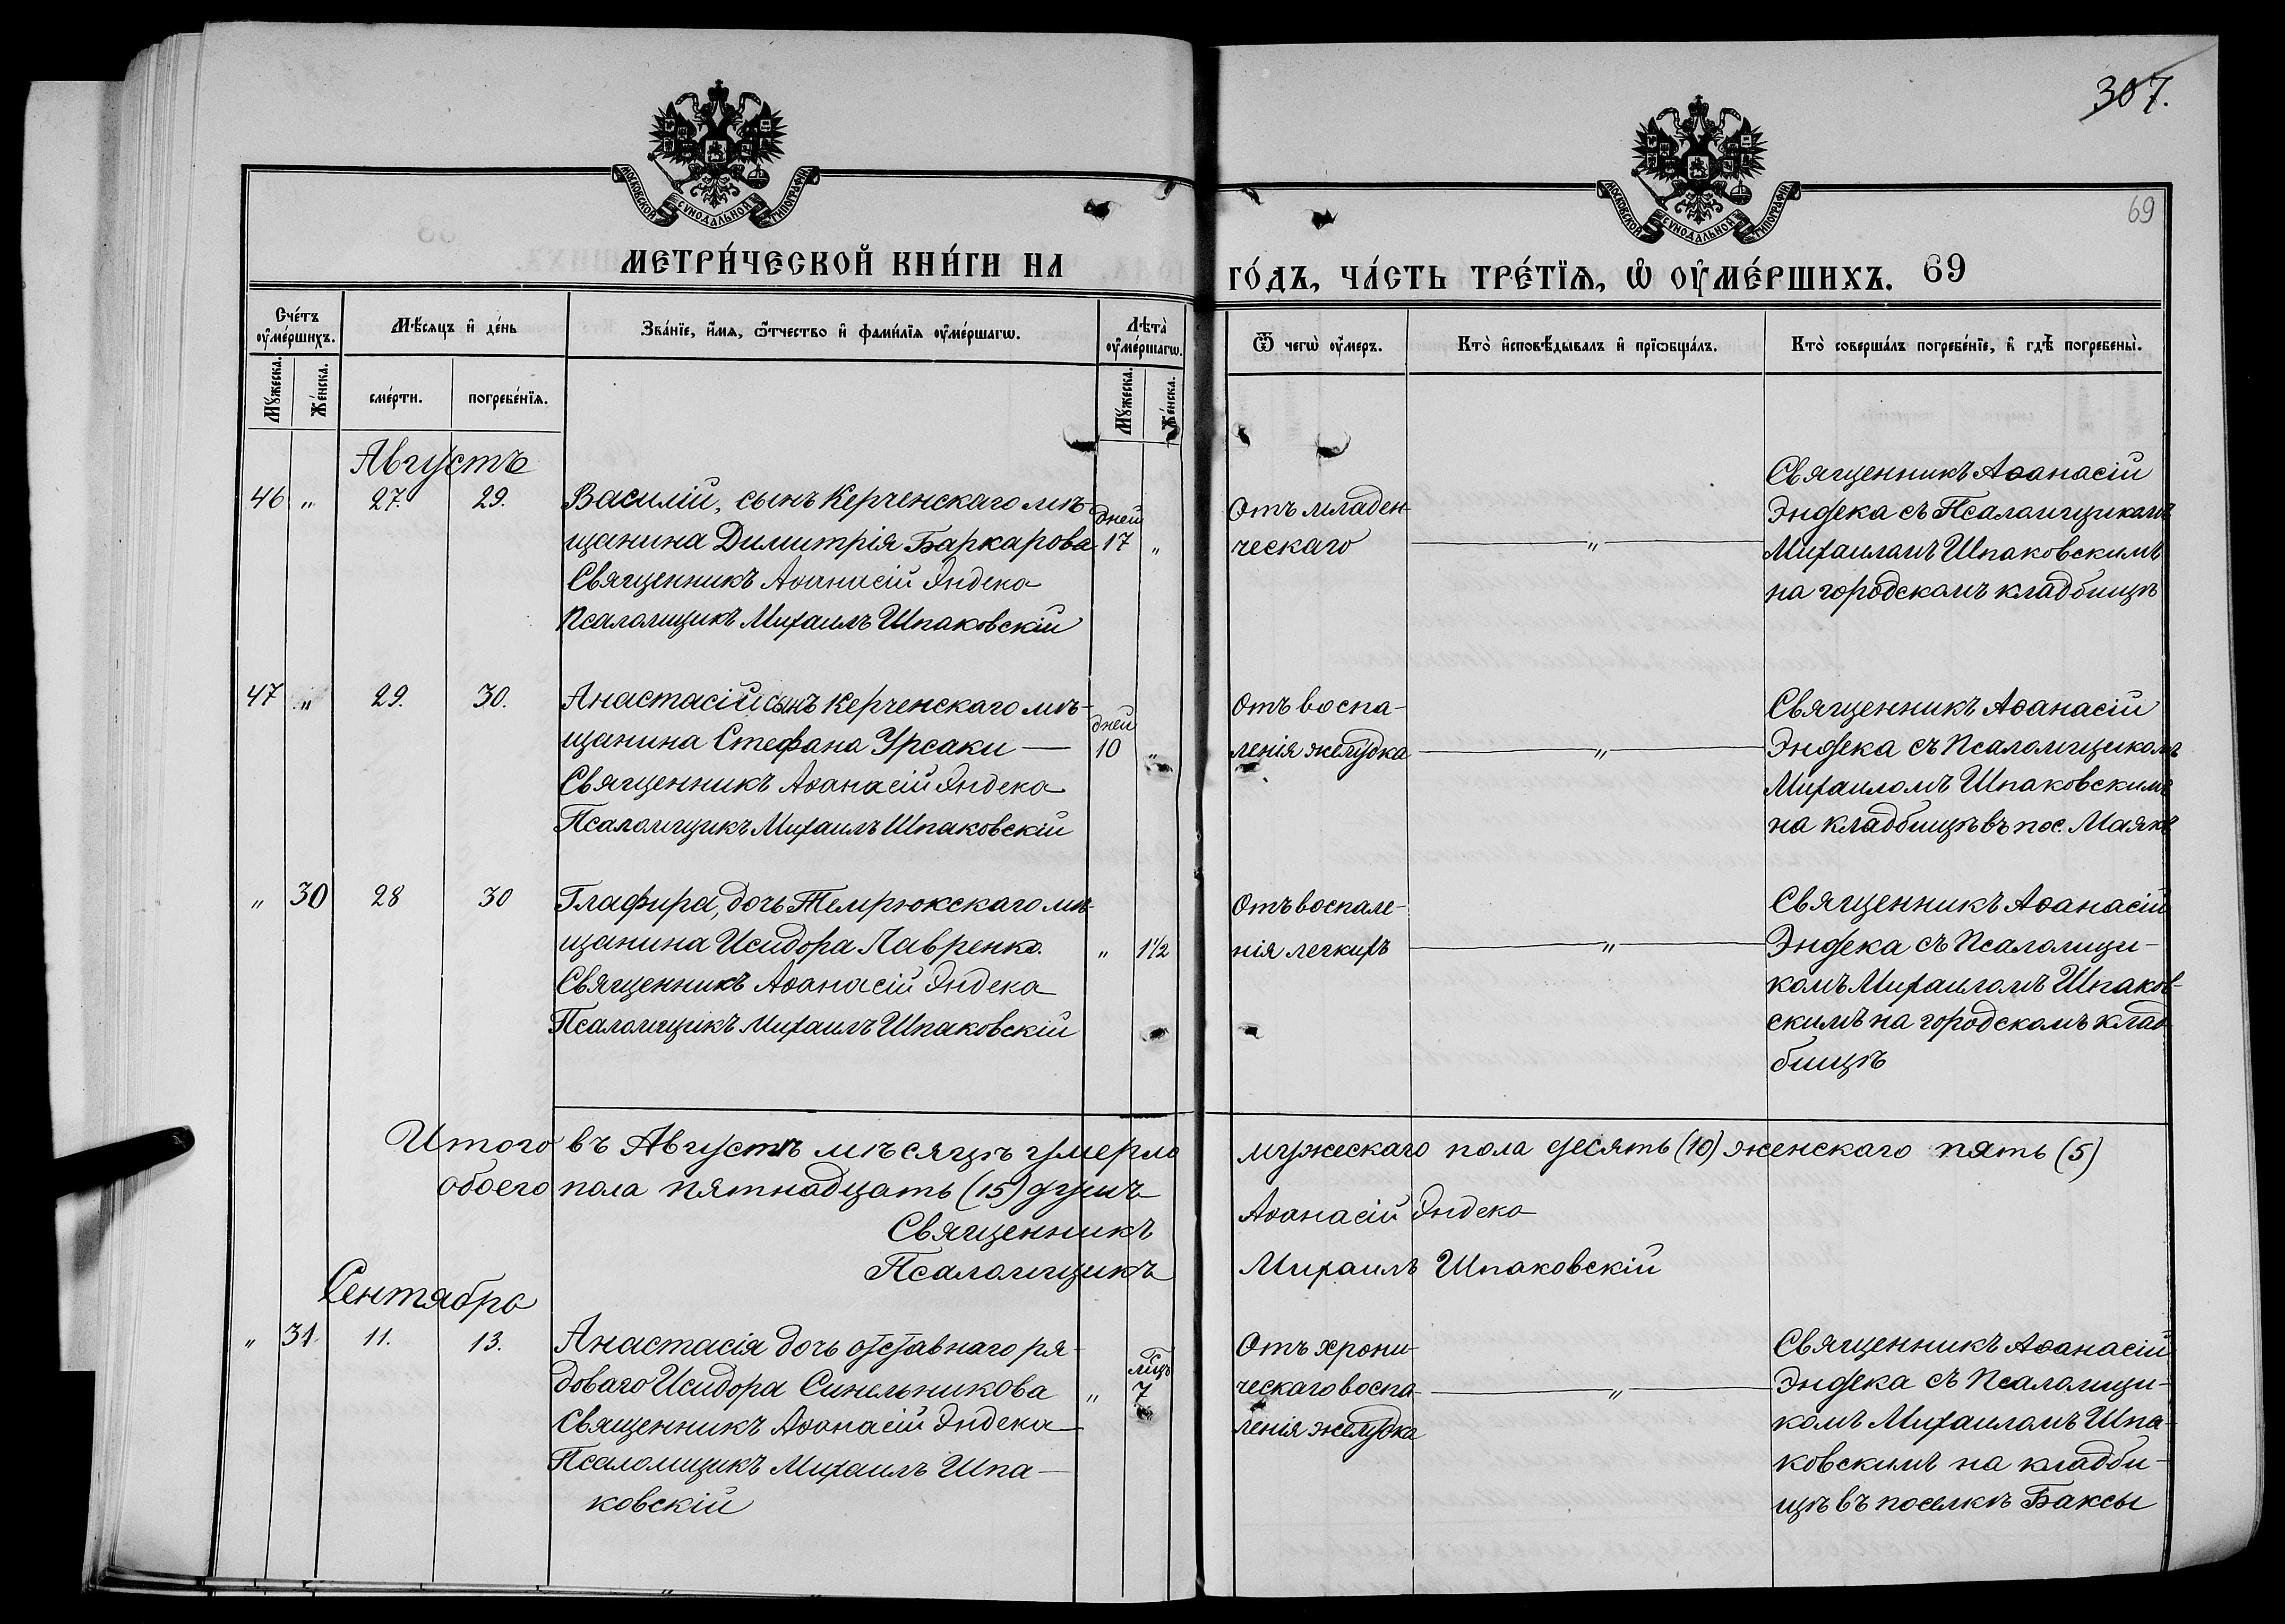 307.
69
МОСКОВСКОЙ СѴНОДАЛЬНОЙ ТИПОГРАФІИ
МОСКОВСКОЙ СѴНОДАЛЬНОЙ ТИПОГРАФІИ
МЕТРИ́ЧЕСКОЙ КНИ́ГИ НА
ГО́ДЪ, ЧА́СТЬ ТРЕ́ТЇѦ, Ѡ҆ ОУ҆МЕ́РШИХЪ. 69
Сче́тъ оу҆ме́ршихъ.
Мѣ́сѧцъ и҆ де́нь
Зва́нїе, и҆́мѧ, ѻ҆́тчество и҆ фами́лїѧ оу҆ме́ршагѡ.
Лѣ́та оу҆ме́ршагѡ.
Ѿ чегѡ̀ оу҆́меръ.
Кто̀ и҆сповѣ́дывалъ и҆ прїѡбща́лъ.
Кто̀ соверша́лъ погребе́нїе, и҆ гдѣ̀ погребены̀.
Мꙋ́жеска.
Же́нска.
сме́рти.
погребе́нїѧ.
Мꙋ́жеска.
Же́нска.
Августъ
46 " 27. 29. Василій, сынъ Керченскаго мѣ-
щанина Димитрія Баркарова
дней
17 "
Священникъ Аѳанасій Эндека
Псаломщикъ Михаилъ Шпаковскій
Отъ младен-
ческаго "
Священникъ Аѳанасій
Эндека съ Псаломщикомъ
Михаиломъ Шпаковскимъ
на городскомъ кладбищѣ
47 " 29. 30. Анастасій сынъ Керченскаго мѣ-
щанина Стефана Урсаки —
дней
10 "
Священникъ Аѳанасій Эндека
Псаломщикъ Михаилъ Шпаковскій
Отъ воспа-
ленія желудка "
Священникъ Аѳанасій
Эндека съ Псаломщикомъ
Михаиломъ Шпаковскимъ
на кладбищѣ въ пос. Маякѣ
" 30 28 30 Глафира, дочь Темрюкскаго мѣ-
щанина Исидора Лавренко. " 1 1/2
Священникъ Аѳанасій Эндека
Псаломщикъ Михаилъ Шпаковскій
Отъ воспале-
нія легкихъ "
Священникъ Аѳанасій
Эндека съ Псаломщи-
комъ Михаиломъ Шпаков-
скимъ на городскомъ клад
бищѣ
Итого въ Августѣ мѣсяцѣ умерло мужескаго пола десять (10) женскаго пять (5)
обоего пола пятнадцать (15) душъ
Священникъ Аѳанасій Эндека
Псаломщикъ Михаилъ Шпаковскій
Сентябрь
" 31 11. 13. Анастасія дочь отставнаго ря-
доваго Исидора Синельникова "
мѣц
7
Священникъ Аѳанасій Эндека
Псаломщикъ Михаилъ Шпа-
ковскій
Отъ хрони-
ческаго воспа- "
ленія желудка
Священникъ Аѳанасій
Эндека съ Псаломщи-
комъ Михаиломъ Шпа-
ковскимъ на кладби-
щѣ въ поселкѣ Баксы